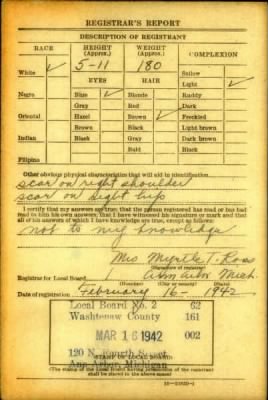 REGISTRAR'S REPORT
DESCRIPTION OF REGISTRANT
RACE HEIGHT (Approx.) WEIGHT (Approx.) COMPLEXION
5-11 180 Sallow
White ✓ EYES HAIR Light ✓
Negro Blue ✓ Blonde Ruddy
Gray Red Dark
Oriental Hazel Brown ✓ Freckled
Brown Black Light brown
Indian Black Gray Dark brown
Bald Black
Filipino
Other obvious physical characteristics that will aid in identification
scar on right shoulder
scar on right hip
I certify that my answers are true; that the person registered has read or has had
read to him his own answers; that I have witnessed his signature or mark and that
all of his answers of which I have knowledge are true, except as follows:
not to my knowledge
Mrs Myrtle T. Ross
(Signature of registrar)
Registrar for Local Board Ann Arbor Mich.
(Number) (City or county) (State)
Date of registration February 16- 1942
Local Board No. 2 62
Washtenaw County 161
MAR 16 1942 002
STAMP OF LOCAL BOARD
120 N. Fourth Street
Ann Arbor Michigan
(The stamp of the Local Board having jurisdiction of the registrant
shall be placed in the above space)